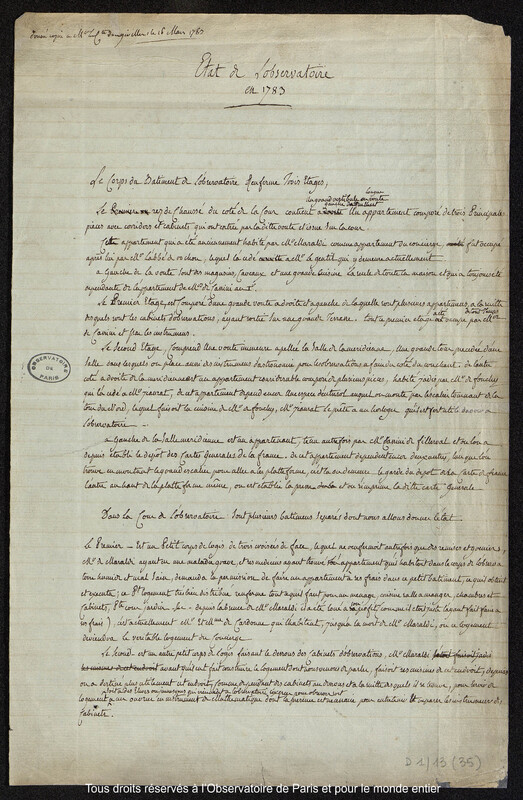 donné copie a Mr le Cte Dangiviller le 16 Mars 1783
Etat de L'observatoire
en 1783
Le Corps du Batiment de L'observatoire Renferme Trois Etages,
un grand vestibule en voute
Le rez de Chaussé du coté de la Cour contient un appartement composé de trois Principales
pieces avec coridors et cabinets qui ont entrée par la dite voute et issue sur la cour.
Cet appartement qui a été anciennement habité par Mr. Maraldi comme appartement du concierge fut occupé
après lui par Mr. L'abbé de rochon, lequel la cédé à Mr. le gentil qui y demeure actuellement
a Gauche de la voute sont des magasins, caveaux et une grande cuisine la seule de toute la maison et qui a toujours été
dependante de l'appartement de Mr. de Cassini
Le Premier Etage, est composé d'une grande voute a droite et a gauche de laquelle sont plusieurs appartements, a la suite
desquels sont les cabinets d'observations, ayant sortie sur une grande terrasse. tout le premier etage a été de tout temps occupé par Mr.
de Cassini et par les instruments.
Le Second Etage, comprend une voute immense appellée la Salle de la meridienne, une grande tour placée dans
salle dans lesquels on place aussi des instruments d'astronomie pour les observations a faire du coté du couchant. de l'autre
coté a droite de la meridienne est un appartement considerable composé de plusieurs pieces, habité jadis par Mr. de fouchy
qui l'a cédé a Mr. jeaurat, de cet appartement depend encore une espece d'entresol auquel on monte par l'escalier tournant de la
tour du Nord, lequel faisoit la cuisine de Mr. de fouchy, Mr. jeaurat le prete a un horloger qui est fort utile
L'observatoire
a Gauche de la Salle meridienne est un appartement, tenu autrefois par Mr. Cassini de et où l'on a
depuis etabli le depot des Cartes generales de la france. de cet appartement dependent encore deux autres, lun que l'on
trouve en montant le grand escalier pour aller a la plateforme, c'est la ou demeure le garde du depot de la Carte de france
L'autre au haut de la platte forme même, ou est etablie la presse ou s'imprime la dite carte generale
Dans la Cour de L'observatoire Sont plusieurs batimens separés dont nous allons donner l'état
Le Premier - Est un Petit corps de logis de trois croisées de face, lequel ne renfermoit autrefois que des remises et greniers,
Mr. de Maraldi ayant eu une maladie grave, et les medecins ayant trouvé l'appartement qu'il habitoit dans le corps de L'observa
toire humide et mal sain, demanda la permission de faire un appartement a ses frais dans ce petit batiment, ce qui il obtint
et executa; ce Pt logement tres bien distribué renferme tout ce qu'il faut pour un menage, cuisine salle a manger, chambres et
Cabinets, Pte cour jardin &c - depuis la retraite de Mr. Maraldi
ses frais), c'est actuellement Mr. et Mde. de Cardonne qui l'habitent, jusqu'a la mort de Mr. Maraldi, où ce logement
deviendra le veritable logement du Concierge
Le Second est un autre petit corps de Logis faisant le dessous des cabinets d'observations, Mr. Maraldi
avant qu'il eut fait construire le logement dont nous venons de parler, faisoit ses cuisines de cet endroit, depuis
on a destiné plus utilement cet endroit, comme dependant des cabinets au dessus et a la suitte desquels il se trouve, pour servir de
logement a un ouvrier en instruments de Mathematique dont la presence est necessaire pour entretenir et reparer les instruments des
Cabinets.
OBSERVATOIRE
DE
PARIS
D 1/13 (35)
Tous droits réservés à l'Observatoire de Paris et pour le monde entier